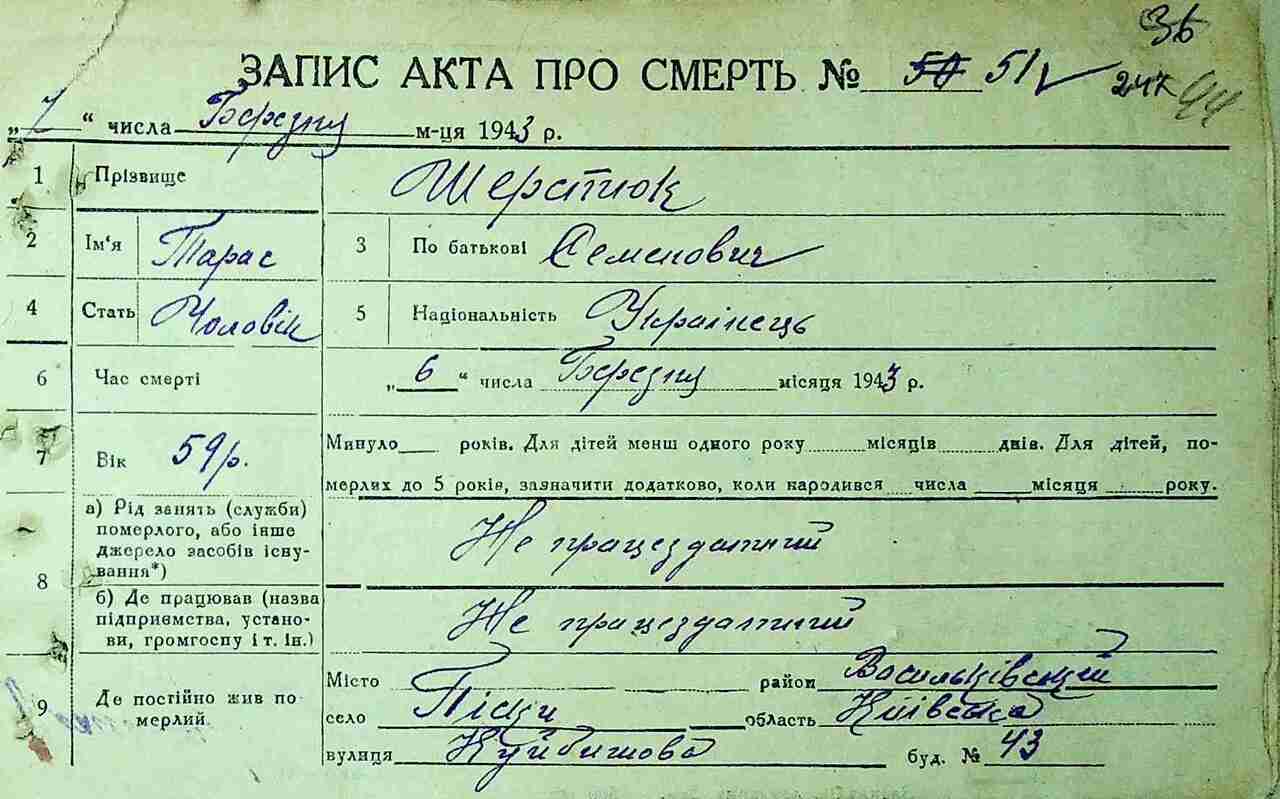 36
ЗАПИС АКТА ПРО СМЕРТЬ № 50 51
247 44
„7“ числа Березня м-ця 1943 р.
1 Прізвище Шерстюк
2 Ім'я Тарас 3 По батькові Семенович
4 Стать Чоловік 5 Національність Українець
6 Час смерті „6“ числа Березня місяця 1943 р.
7 Вік 59 р. Минуло років. Для дітей менш одного року місяців днів. Для дітей, по-
мерлих до 5 років, зазначити додатково, коли народився числа місяця року.
8 а) Рід занять (служби)
померлого, або інше
джерело засобів існу-
вання*)
Не працездатний
б) Де працював (назва
підприємства, устано-
ви, громгоспу і т. ін.)
Не працездатний
9 Де постійно жив по-
мерлий
Місто район Васильківський
село Піски область Київська
вулиця Куйбишова буд. № 43